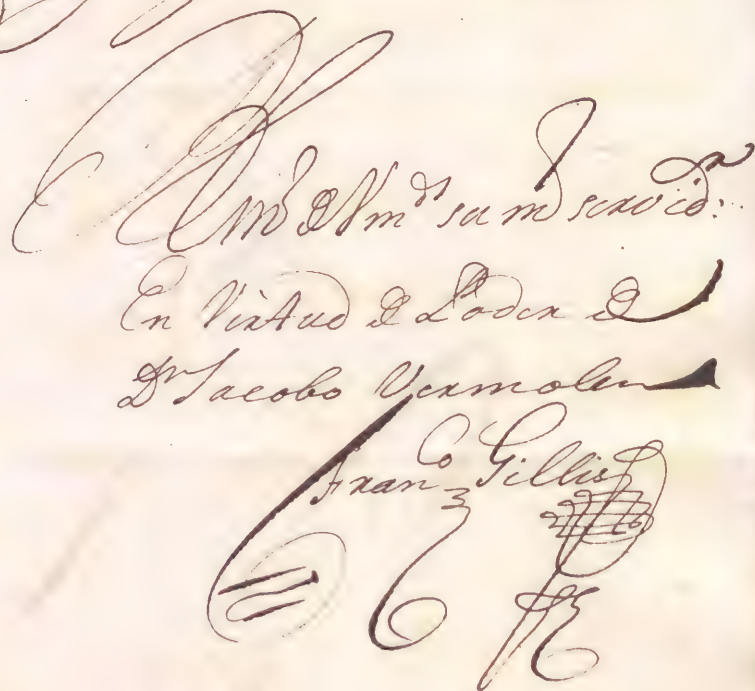 BLM.º de Vm.ds su mr servidr:
En Virtud de Poder de
Dn Jacobo Vermolen
Franco Gillis